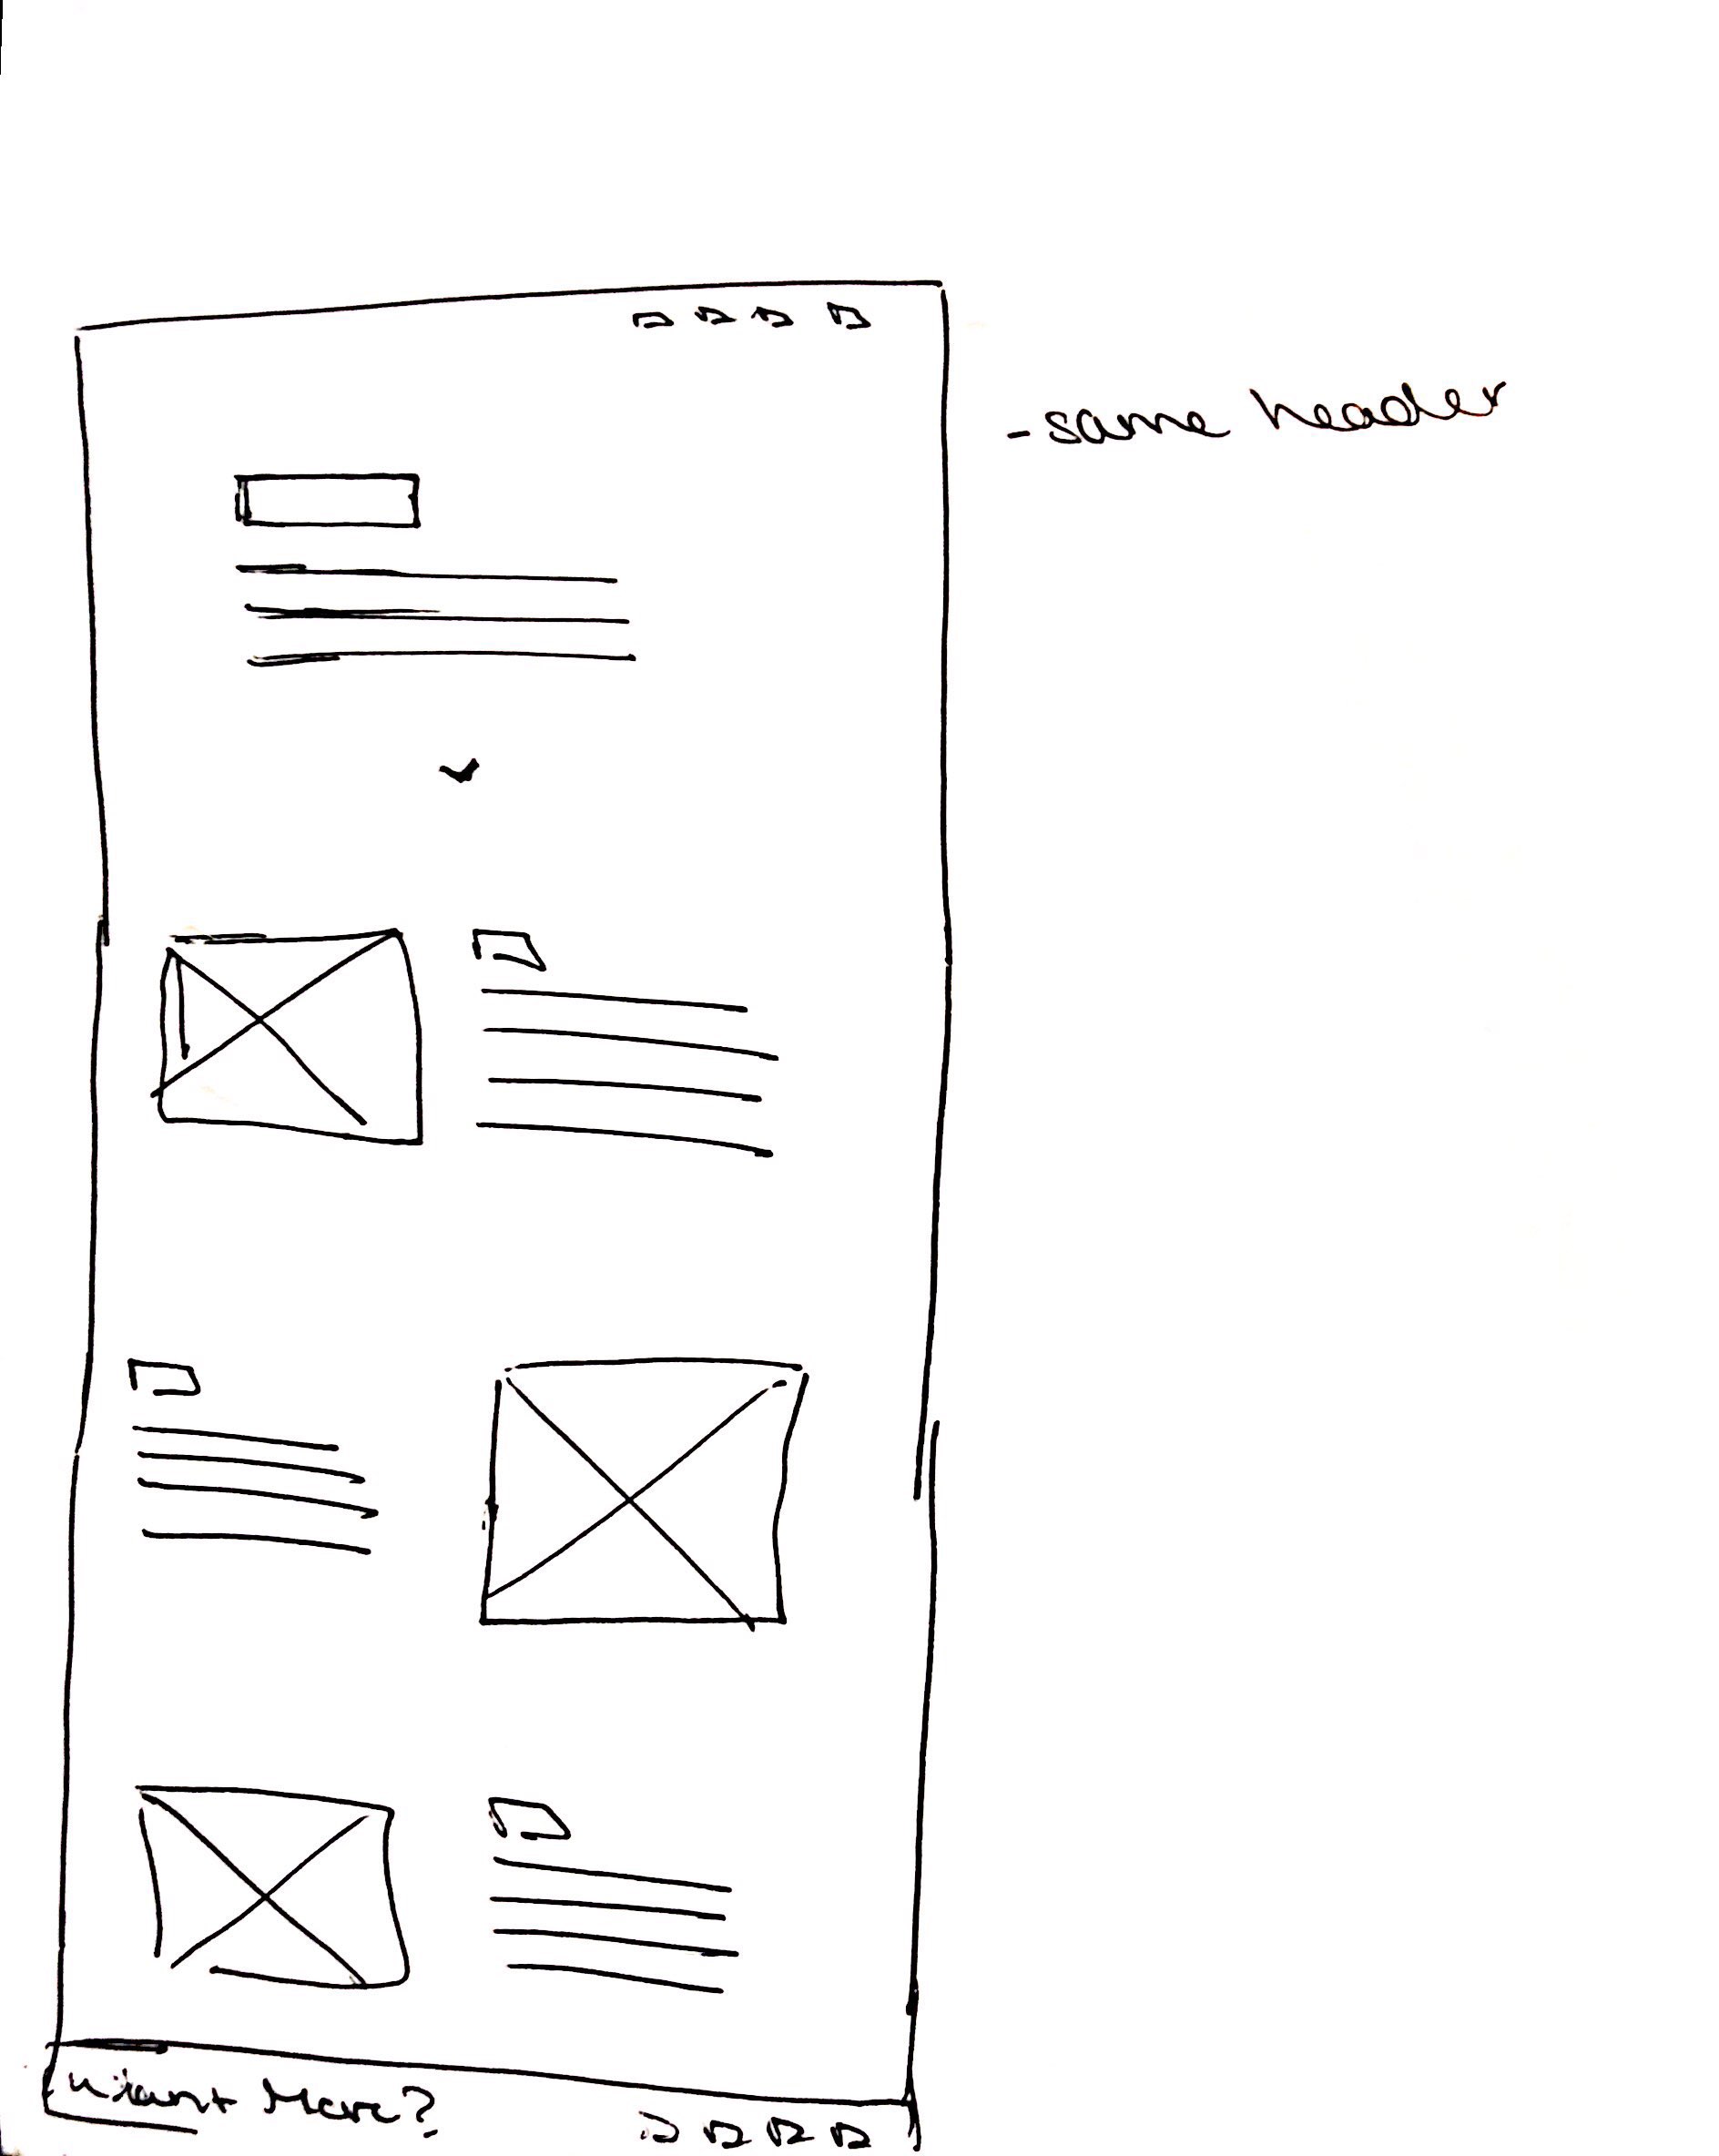 - same header
Want More?